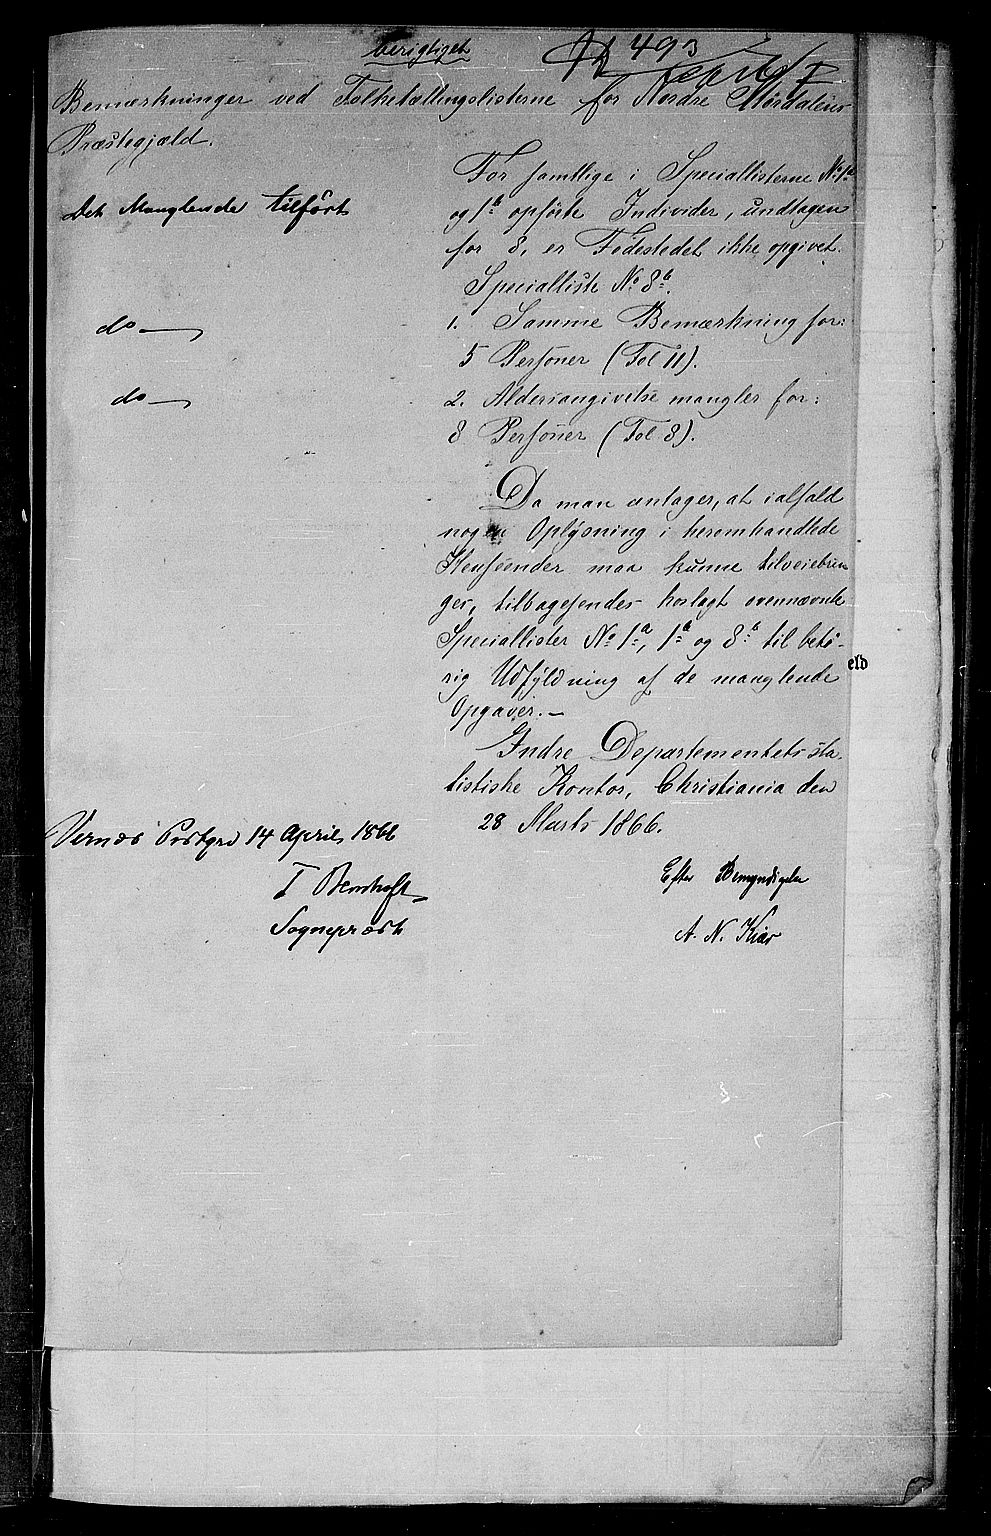 berigtiget
493
Bemærkninger ved Folketællingslisterne for Nordre Stördalens
Præstegjæld.
For samtlige i Speciallisterne No 1a
Det Manglende tilfört
og 1b opförte Individer, undtagen
for 8, er Födestedet ikke opgivet.
Specialliste No 8b.
do
1. Samme Bemærkning for:
5 Personer (Fol 11).
do
2. Aldersangivelse mangler for:
8 Personer (Fol 8).
Da man antager, at ialfald
nogen Oplysning i heromhandlede
Henseender maa kunne tilveiebrin
ges, tilbagesendes hoslagt ovennævnte
Speciallister No 1a, 1b og 8b til behö-
rig Udfyldning af de manglende
Opgaver.-
eld
Indre Departementets sta
tistiske Kontor, Christiania den
28 Marts 1866.
Vernæs Præstgrd 14 April 1866
Efter Bemyndigelse
Sognepræst
A. N. Kiær